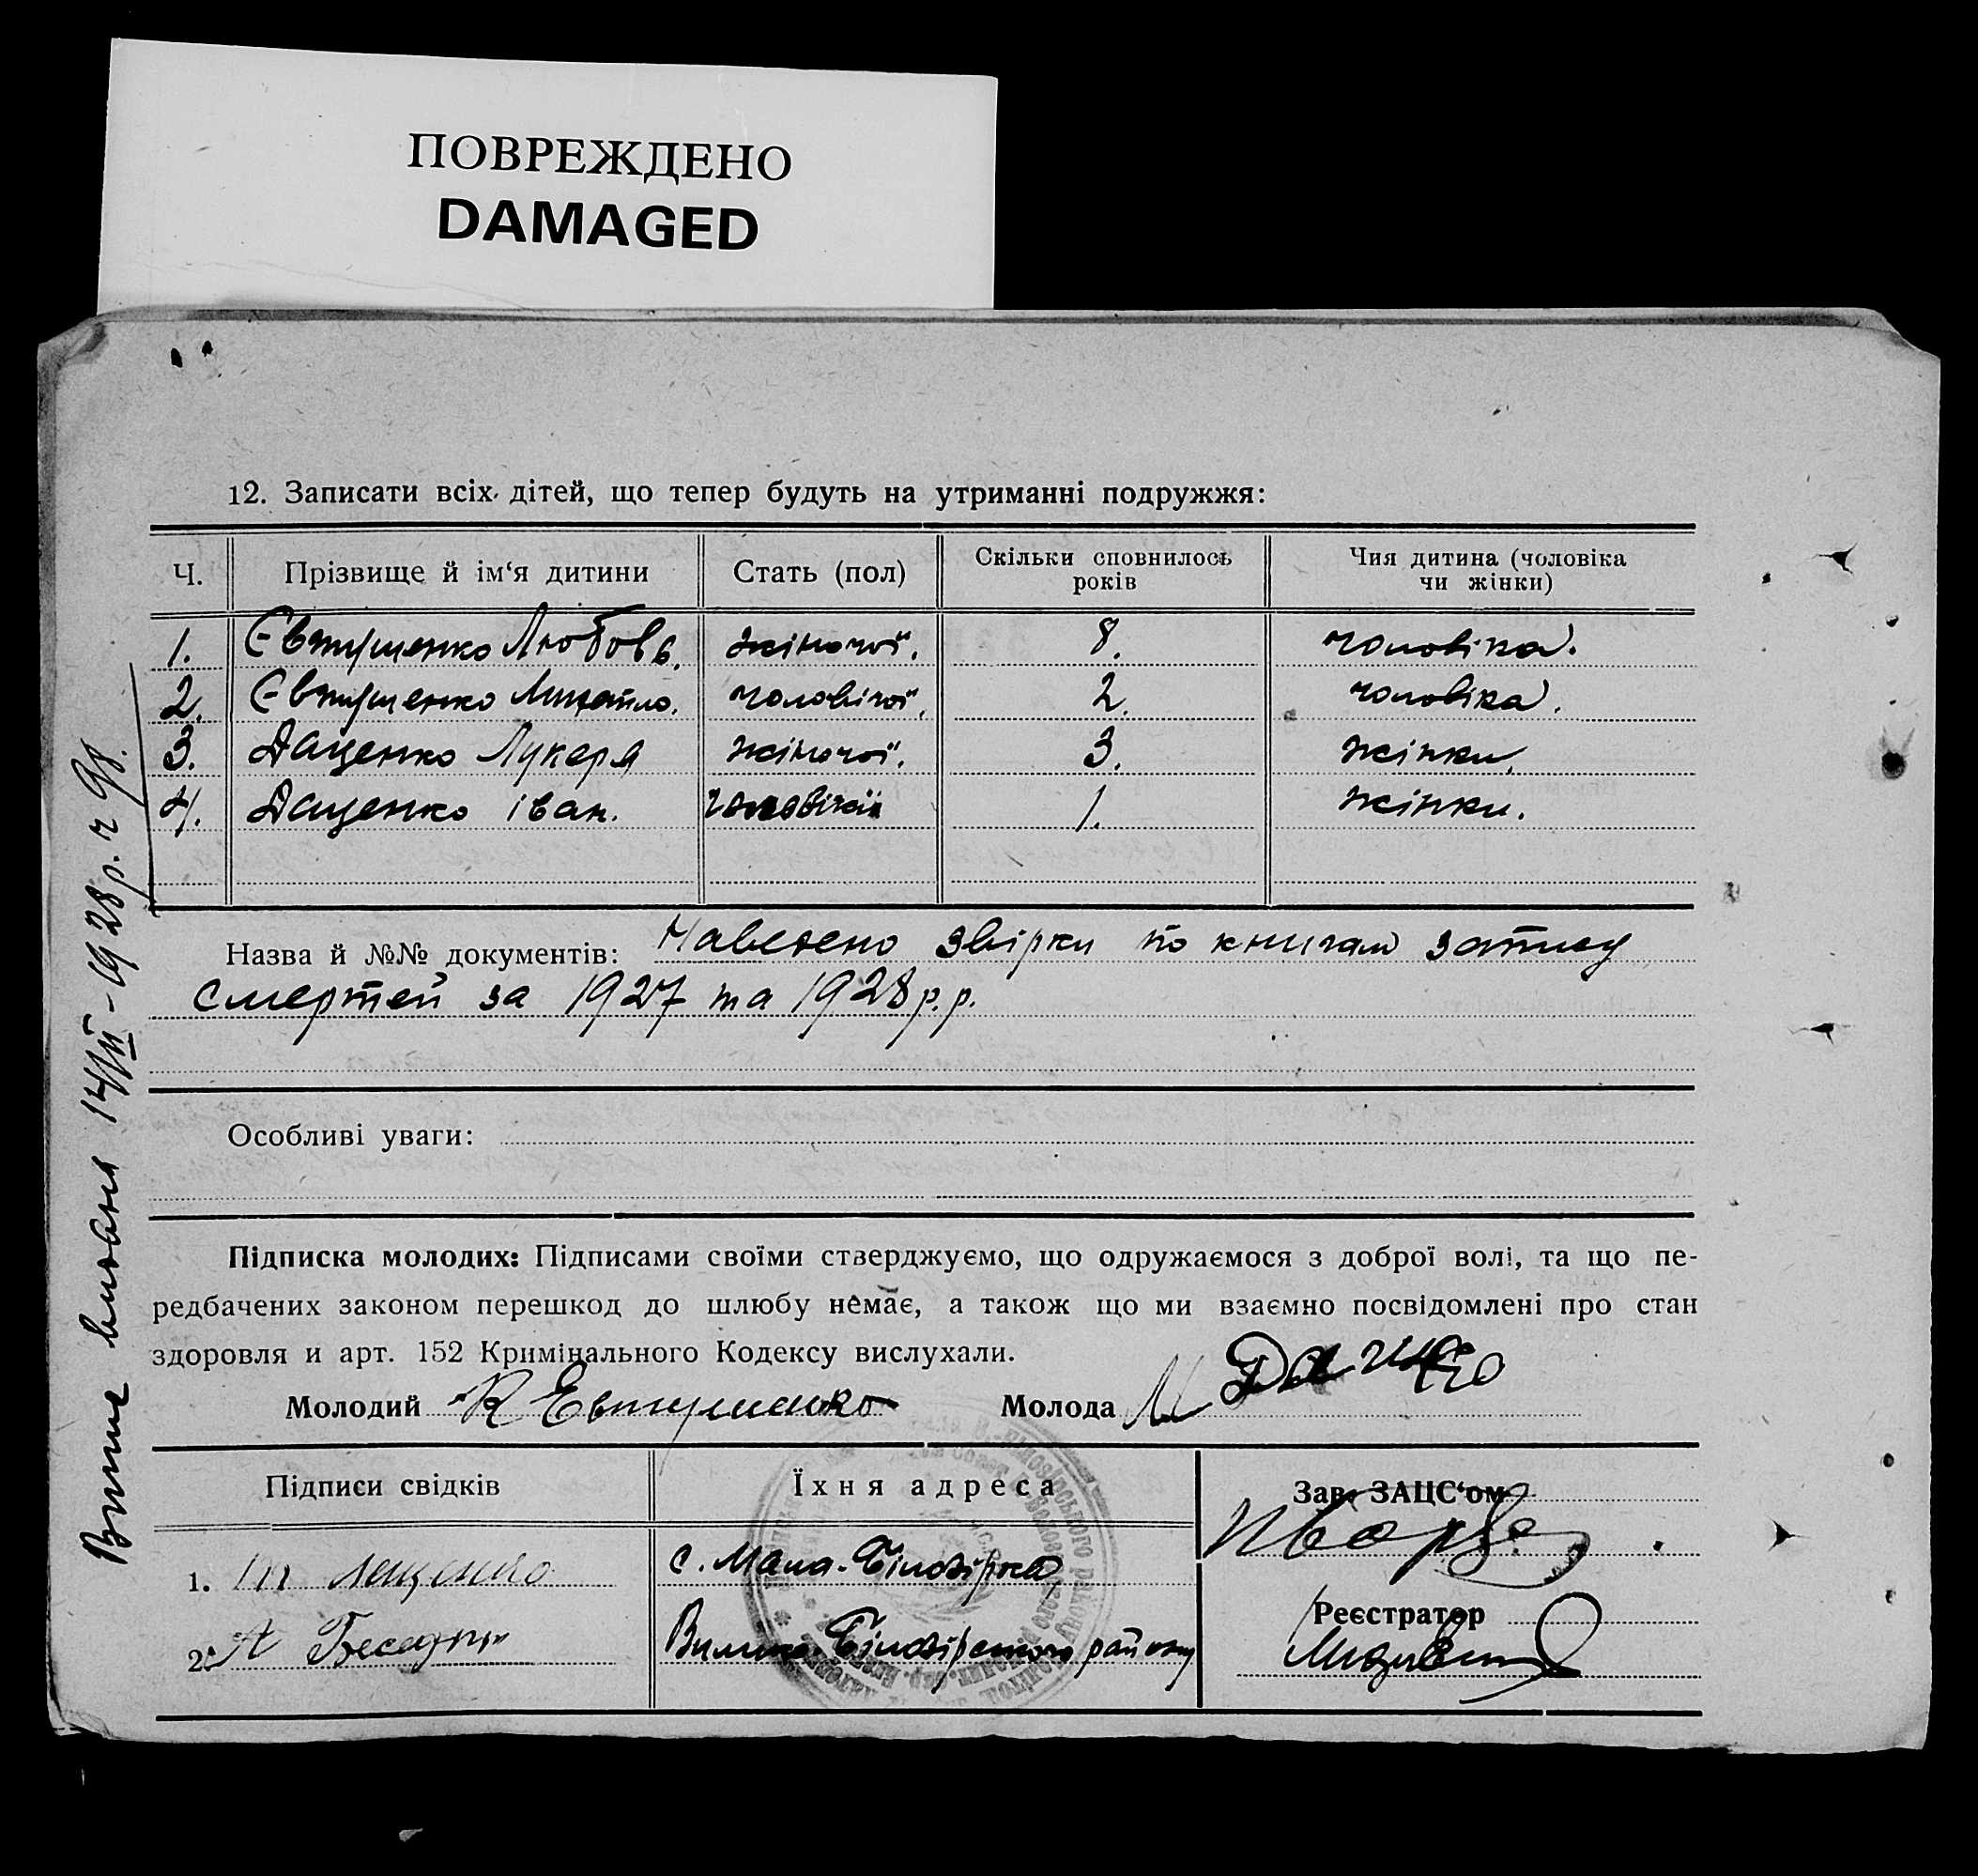 ПОВРЕЖДЕНО
DAMAGED
12. Записати всіх дітей, що тепер будуть на утриманні подружжя:
Ч. Прізвище й ім‘я дитини Стать (пол) Скільки сповнилось років Чия дитина (чоловіка чи жінки)
1. Євтушенко Любовь. жіночої. 8. чоловіка.
2. Євтушенко Михайло. чоловічої. 2. чоловіка.
3. Даценко Лукеря жіночої. 3. жінки.
4. Даценко Іван. чоловічої 1. жінки.
Назва й №№ документів: Наведено звірки по книгам запису
смертей за 1927 та 1928 р.р.
Особливі уваги:
Підписка молодих: Підписами своїми стверджуємо, що одружаємося з доброї волі, та що пе-
редбачених законом перешкод до шлюбу немає, а також що ми взаємно посвідомлені про стан
здоровля и арт. 152 Кримінального Кодексу вислухали.
Молодий К Евтушенко Молода
Підписи свідків Їхня адреса Зав. ЗАЦС‘ом
1. Лещенко с. Мала-Білозірка
Реєстратор
2. А Беседин Билозірського району
14/II-1928 р. ч 98.